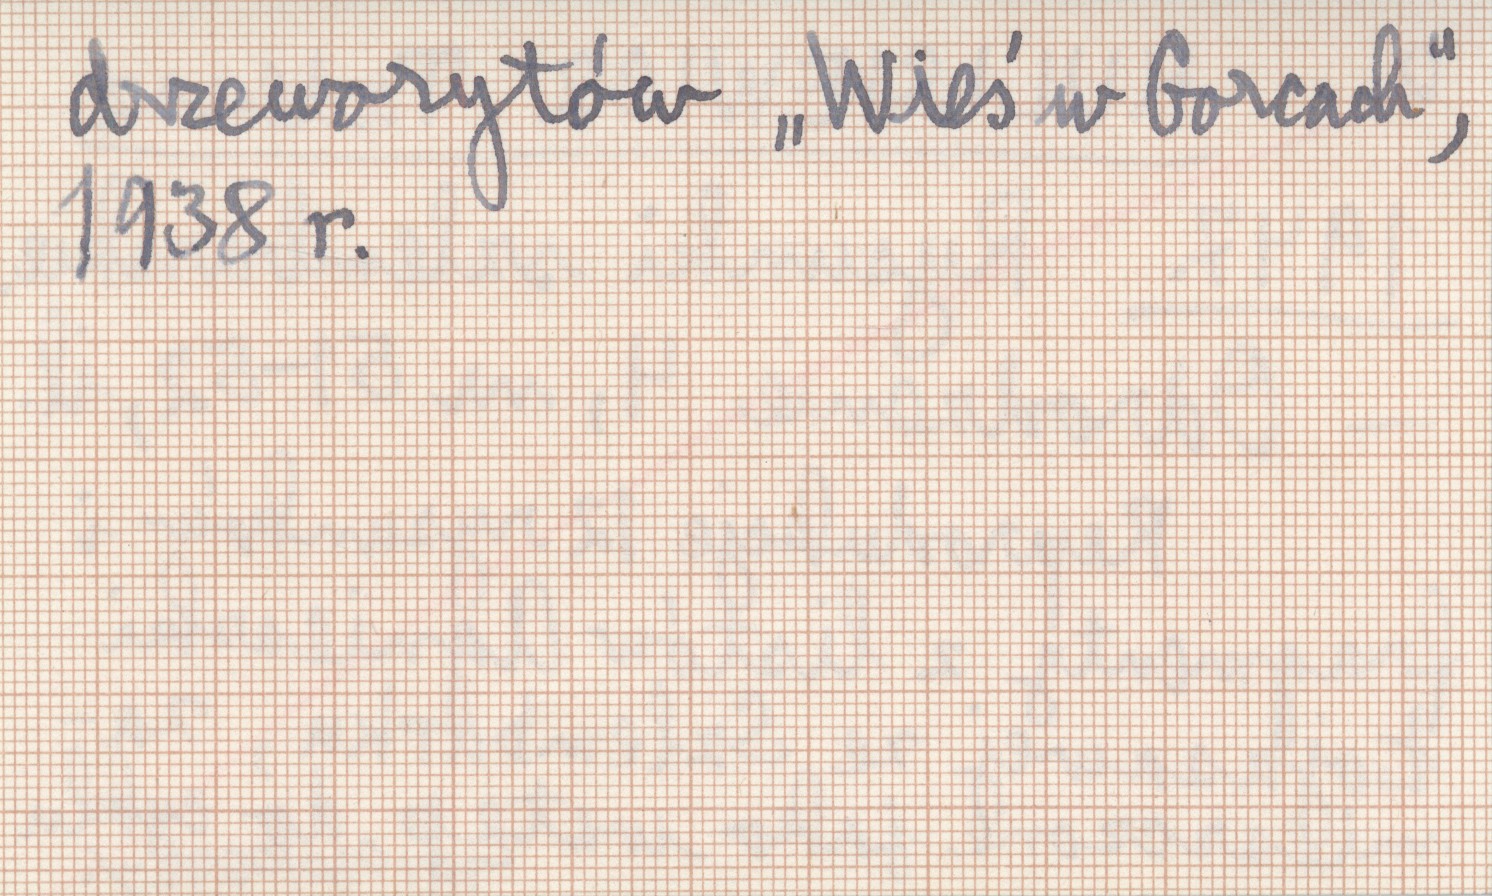 drzeworytów „Wieś w Gorcach“,
1938 r.